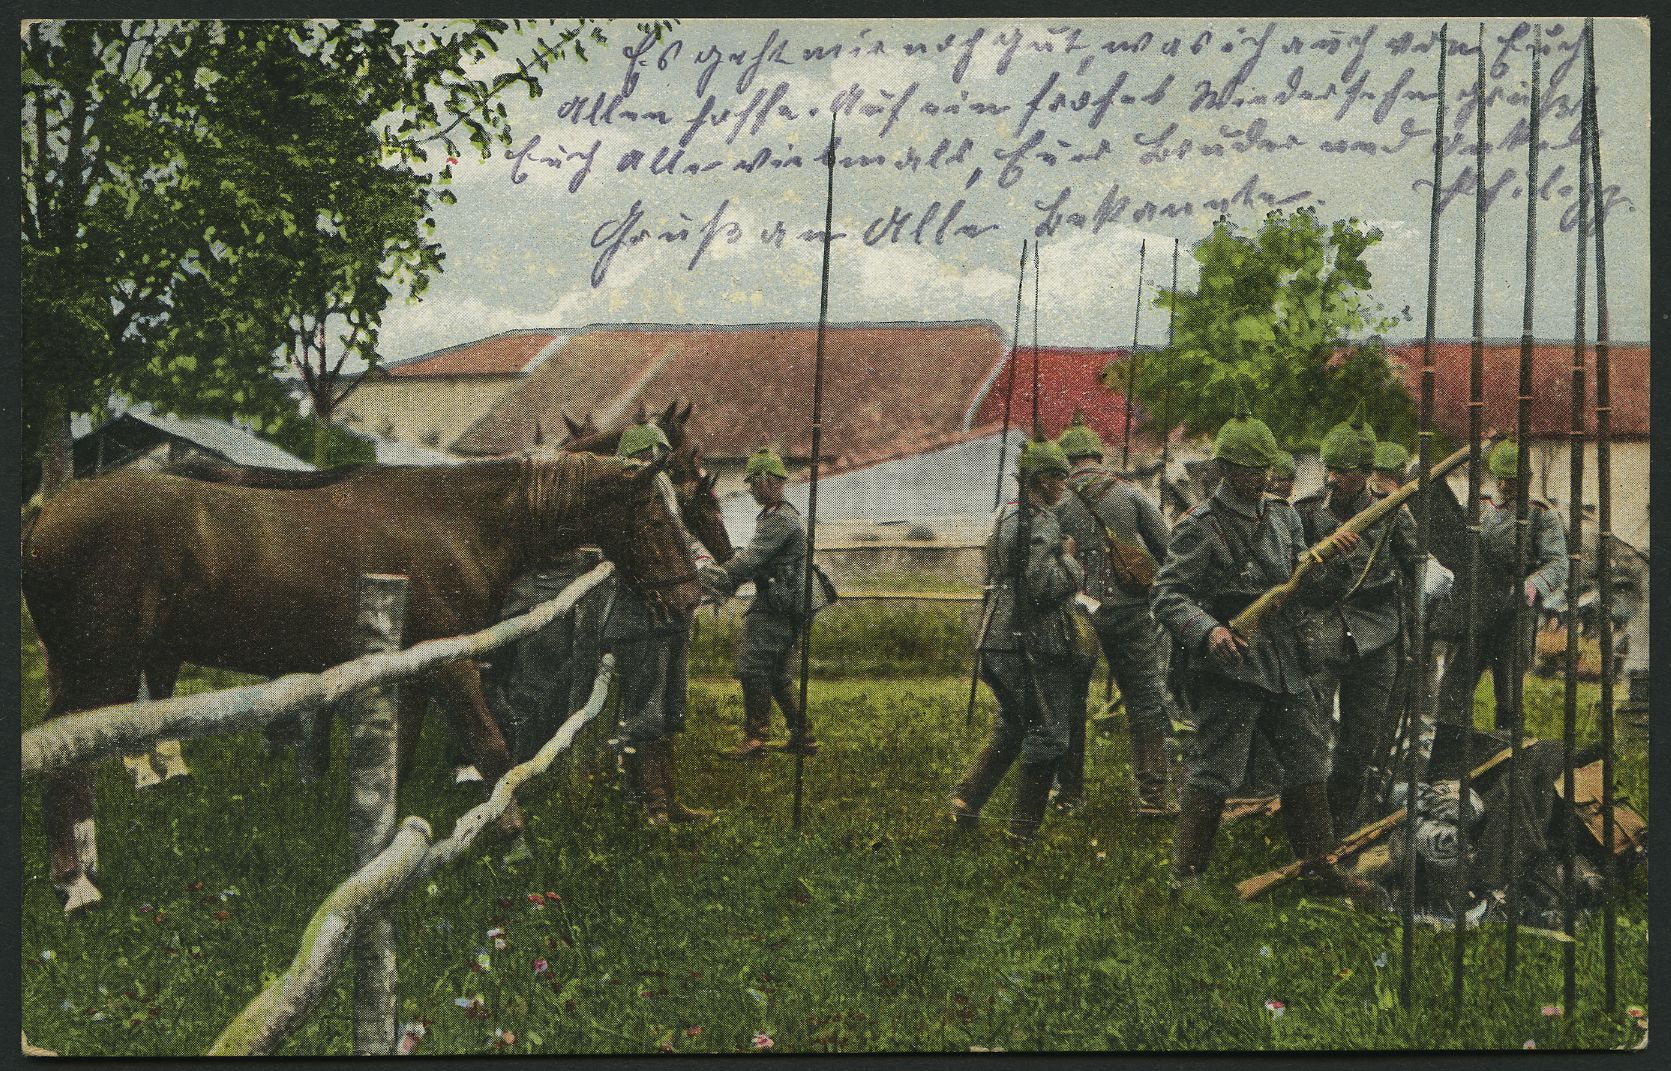 Es geht mir noch gut, was ich auch von Euch
Allen hoffe. Auf ein frohes Wiedersehn grüßt
Euch alle vielmals, Euer Bruder und Onkel
Philipp.
Gruß an Alle Bekannte.